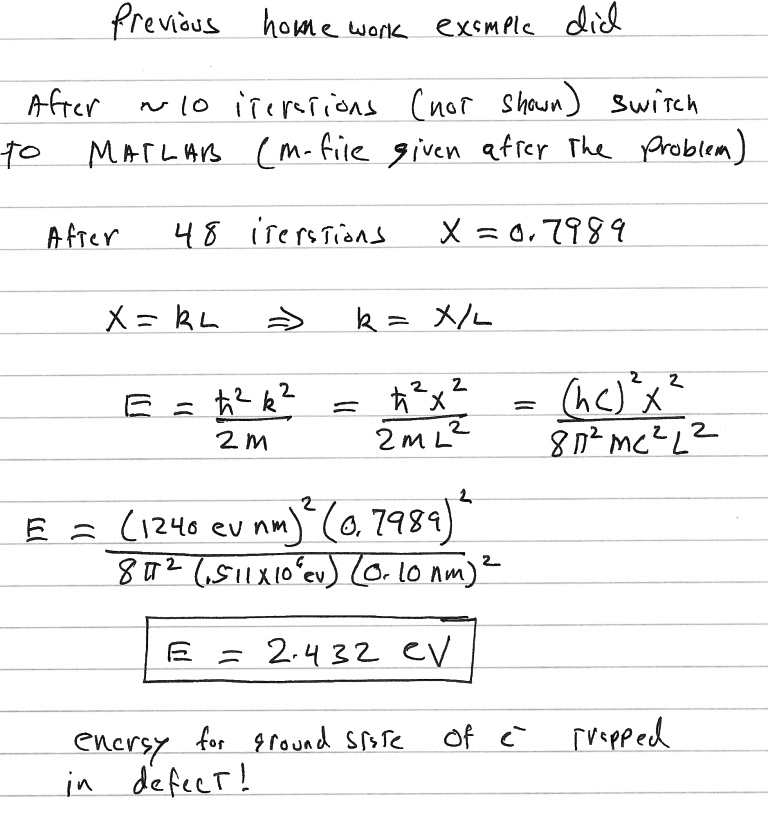 Previous homework example did
After ~10 iterations (not shown) switch
to MATLAB (m-file given after the problem)
After 48 iterations X = 0.7989
X = kL ⇒ k = X/L
E = ħ²k²/2m = ħ²X²/2mL² = (hc)²X²/8π²mc²L²
E = (1240 eV nm)²(0.7989)²/8π²(.511x10⁶eV)(0.10 nm)²
E = 2.432 eV
energy for ground state of e⁻ trapped
in defect!